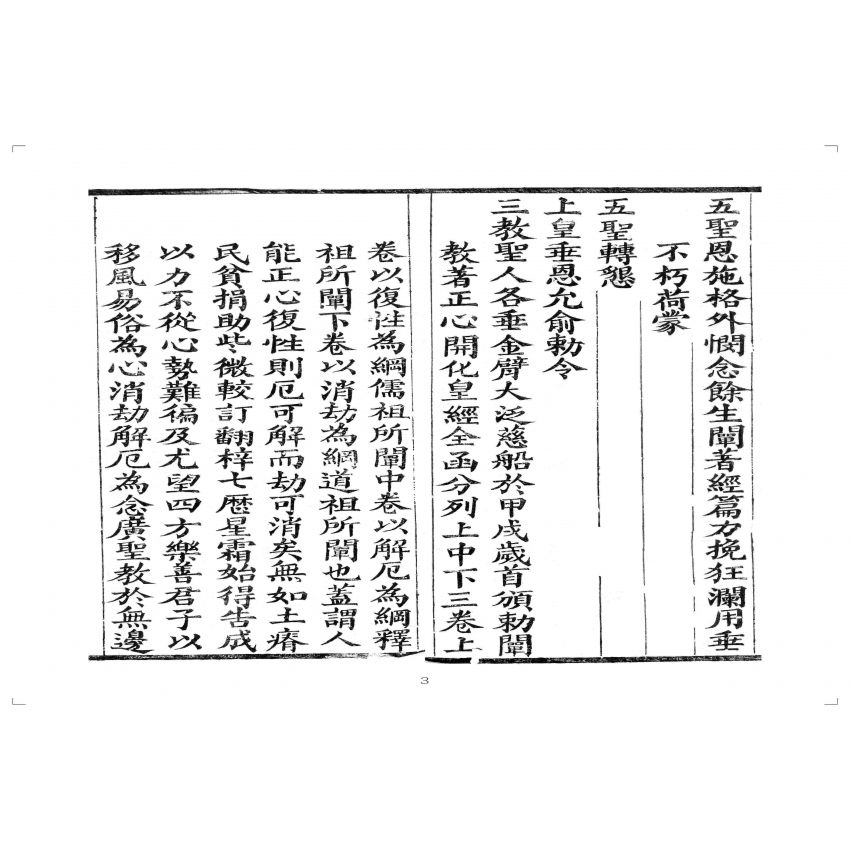 五聖恩施格外憫念餘生闡著經篇力挽狂瀾用垂
不朽荷蒙
五聖轉懇
上皇垂恩允俞勅令
三教聖人各垂金臂大泛慈船於甲戌歲首頒勅闡
教著正心開化皇經全函分列上中下三卷上
卷以復性為綱儒祖所闡中卷以解厄為綱釋
祖所闡下卷以消劫為綱道祖所闡也蓋謂人
能正心復性則厄可解而劫可消矣無如土瘠
民貧捐助些微較訂翻梓七歷星霜始得告成
以力不從心勢難徧及尤望四方樂善君子以
移風易俗為心消劫解厄為念廣聖教於無邊
3